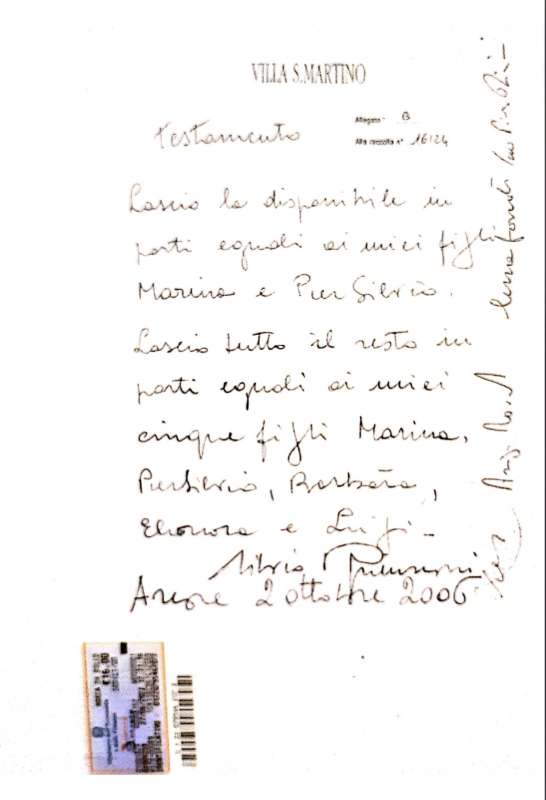 VILLA S.MARTINO
Allegato " B
Alla raccolta n° 16124
Testamento
Lascio la disponibile in
parti eguali ai miei figli
Marina e Pier Silvio.
Lascio tutto il resto in
parti eguali ai miei
cinque figli Marina,
PierSilvio, Barbara,
Eleonora e Luigi -
Silvio Berlusconi
Arcore 2 ottobre 2006
€16,00